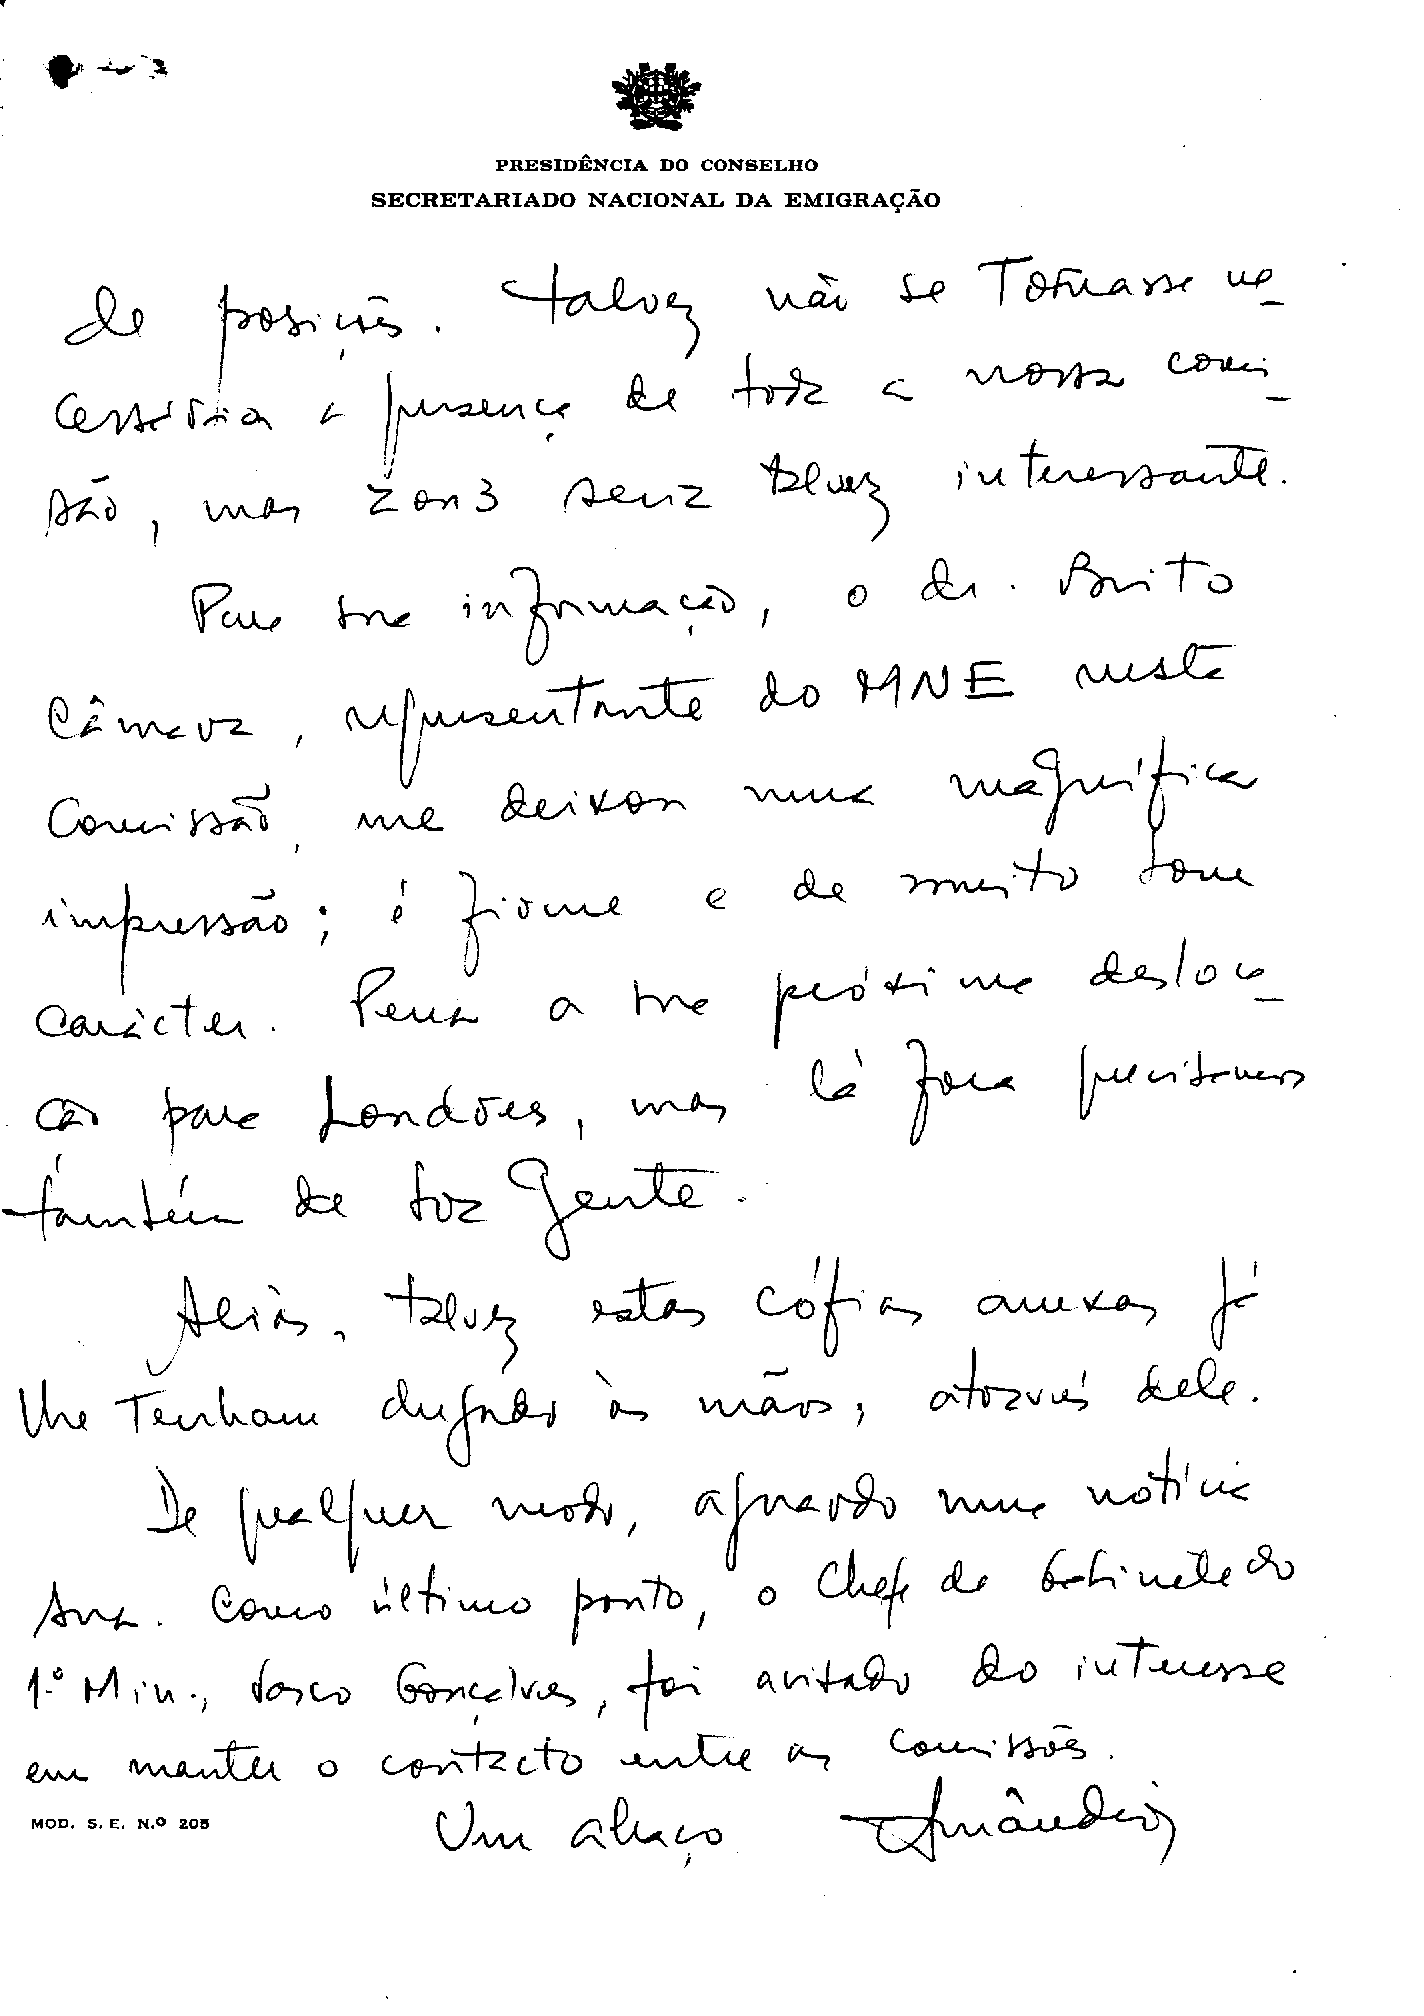 PRESIDÊNCIA DO CONSELHO
SECRETARIADO NACIONAL DA EMIGRAÇÃO
de posições. Talvez não se tornasse ne_
cessária a presença de toda a nossa comi_
são, mas 2 ou 3 seria talvez interessante.
Para sua informação, o dr. Brito
Câmara, representante do MNE nesta
Comissão, me deixou uma magnífica
impressão; é firme e de muito bom
carácter. Pena a sua próxima desloca_
ção para Londres, mas lá fora precisamos
também de boa gente.
Aliás, talvez estas cópias anexas já
lhe tenham chegado às mãos, através dele.
De qualquer modo, aguardo uma notícia
sua. Como último ponto, o Chefe de Gabinete do
1.º Min., Vasco Gonçalves, foi avisado do interesse
em manter o contacto entre as comissões.
Um abraço Amândio
MOD. S. E. N.º 205